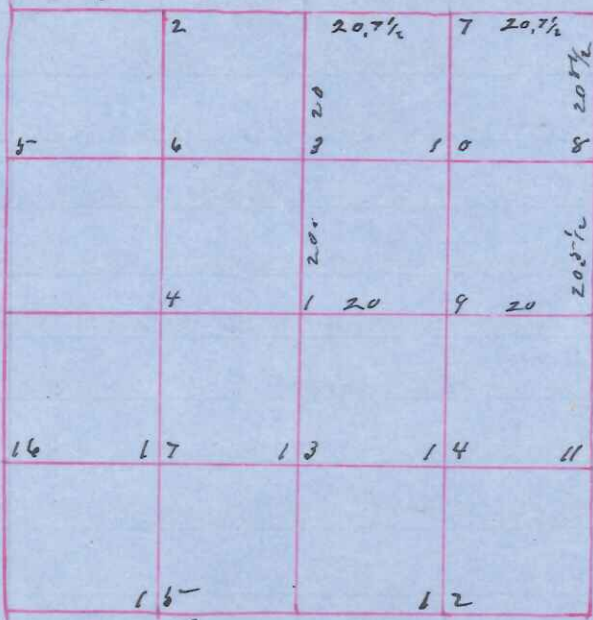 2 20.7½ 7 20.7½
20 20 8½
5 6 3 10 8
20. 20.5½
4 1 20 9 20
16 17 13 14 11
15 12